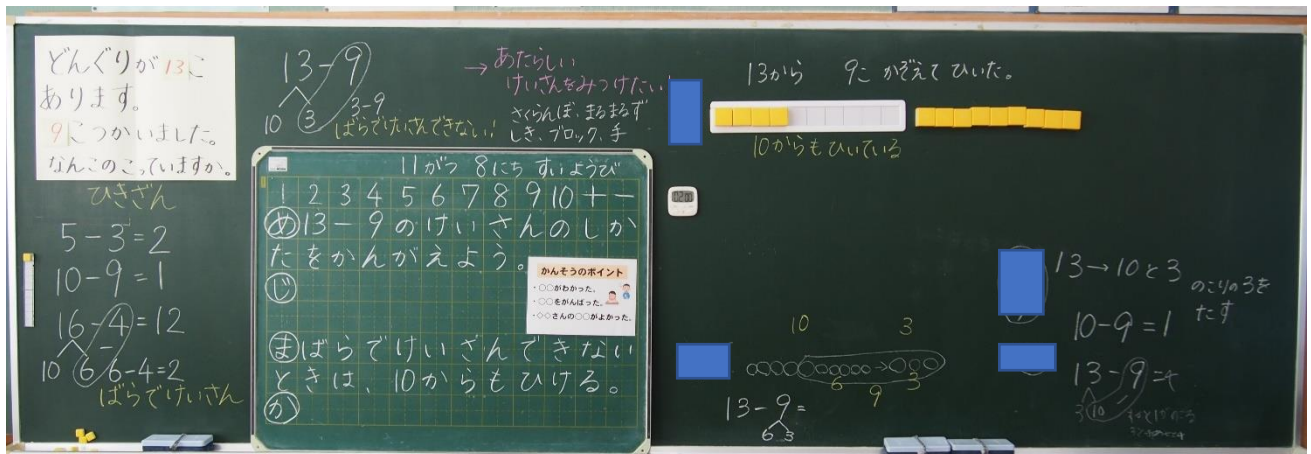 どんぐりが13こ
あります。
9こつかいました。
なんこのこっていますか。
ひきざん
5-3=2
10-9=1
16-4=12
10 6 6-4=2
ばらでけいさん
13-9
10 3 3-9
ばらでけいさんできない!
→あたらしい
けいさんをみつけたい!
さくらんぼ、まるまるず
しき、ブロック、手
11がつ 8にち すいようび
1 2 3 4 5 6 7 8 9 10 + -
め 13-9のけいさんのしか
たをかんがえよう。
じ
かんそうのポイント
・○○がわかった。
・○○をがんばった。
・◇◇さんの○○がよかった。
ま ばらでけいさんできない
ときは、10からもひける。
か
13から 9こ かぞえて ひいた。
10からもひいている
10 3
6 3
9
13-9=
6 3
13→10と3
のこりの3を
たす
10-9=1
13-9=4
3 10